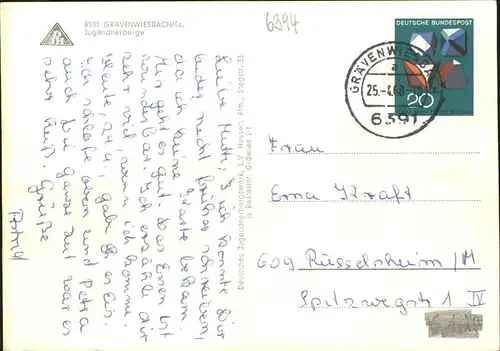 6931 GRÄVENWIESBACH/Ts.
Jugendherberge
6394
DEUTSCHE BUNDESPOST
20
GRÄVENWIESBACH
a
25.-4.68
6391
Liebe Mutti, ich konnte Dir
leider nicht früher schreiben,
da ich keine Karte bekam.
Mir geht es gut. Das Essen ist
wunderbar. Ich erzähle dir
sehr viel, wenn ich komme.
Heute, 24.4., gab es Eis.
Ich schlafe oben und Petra
auch. Die ganze Zeit war es
sehr heiß. Grüße
Astrid
Deutsches Jugendherbergswerk, LV Hessen, Ffm., Stegstr. 33
Frau
Erna Kraft
609 Rüsselsheim/M
Spitzwegstr. 1 IV